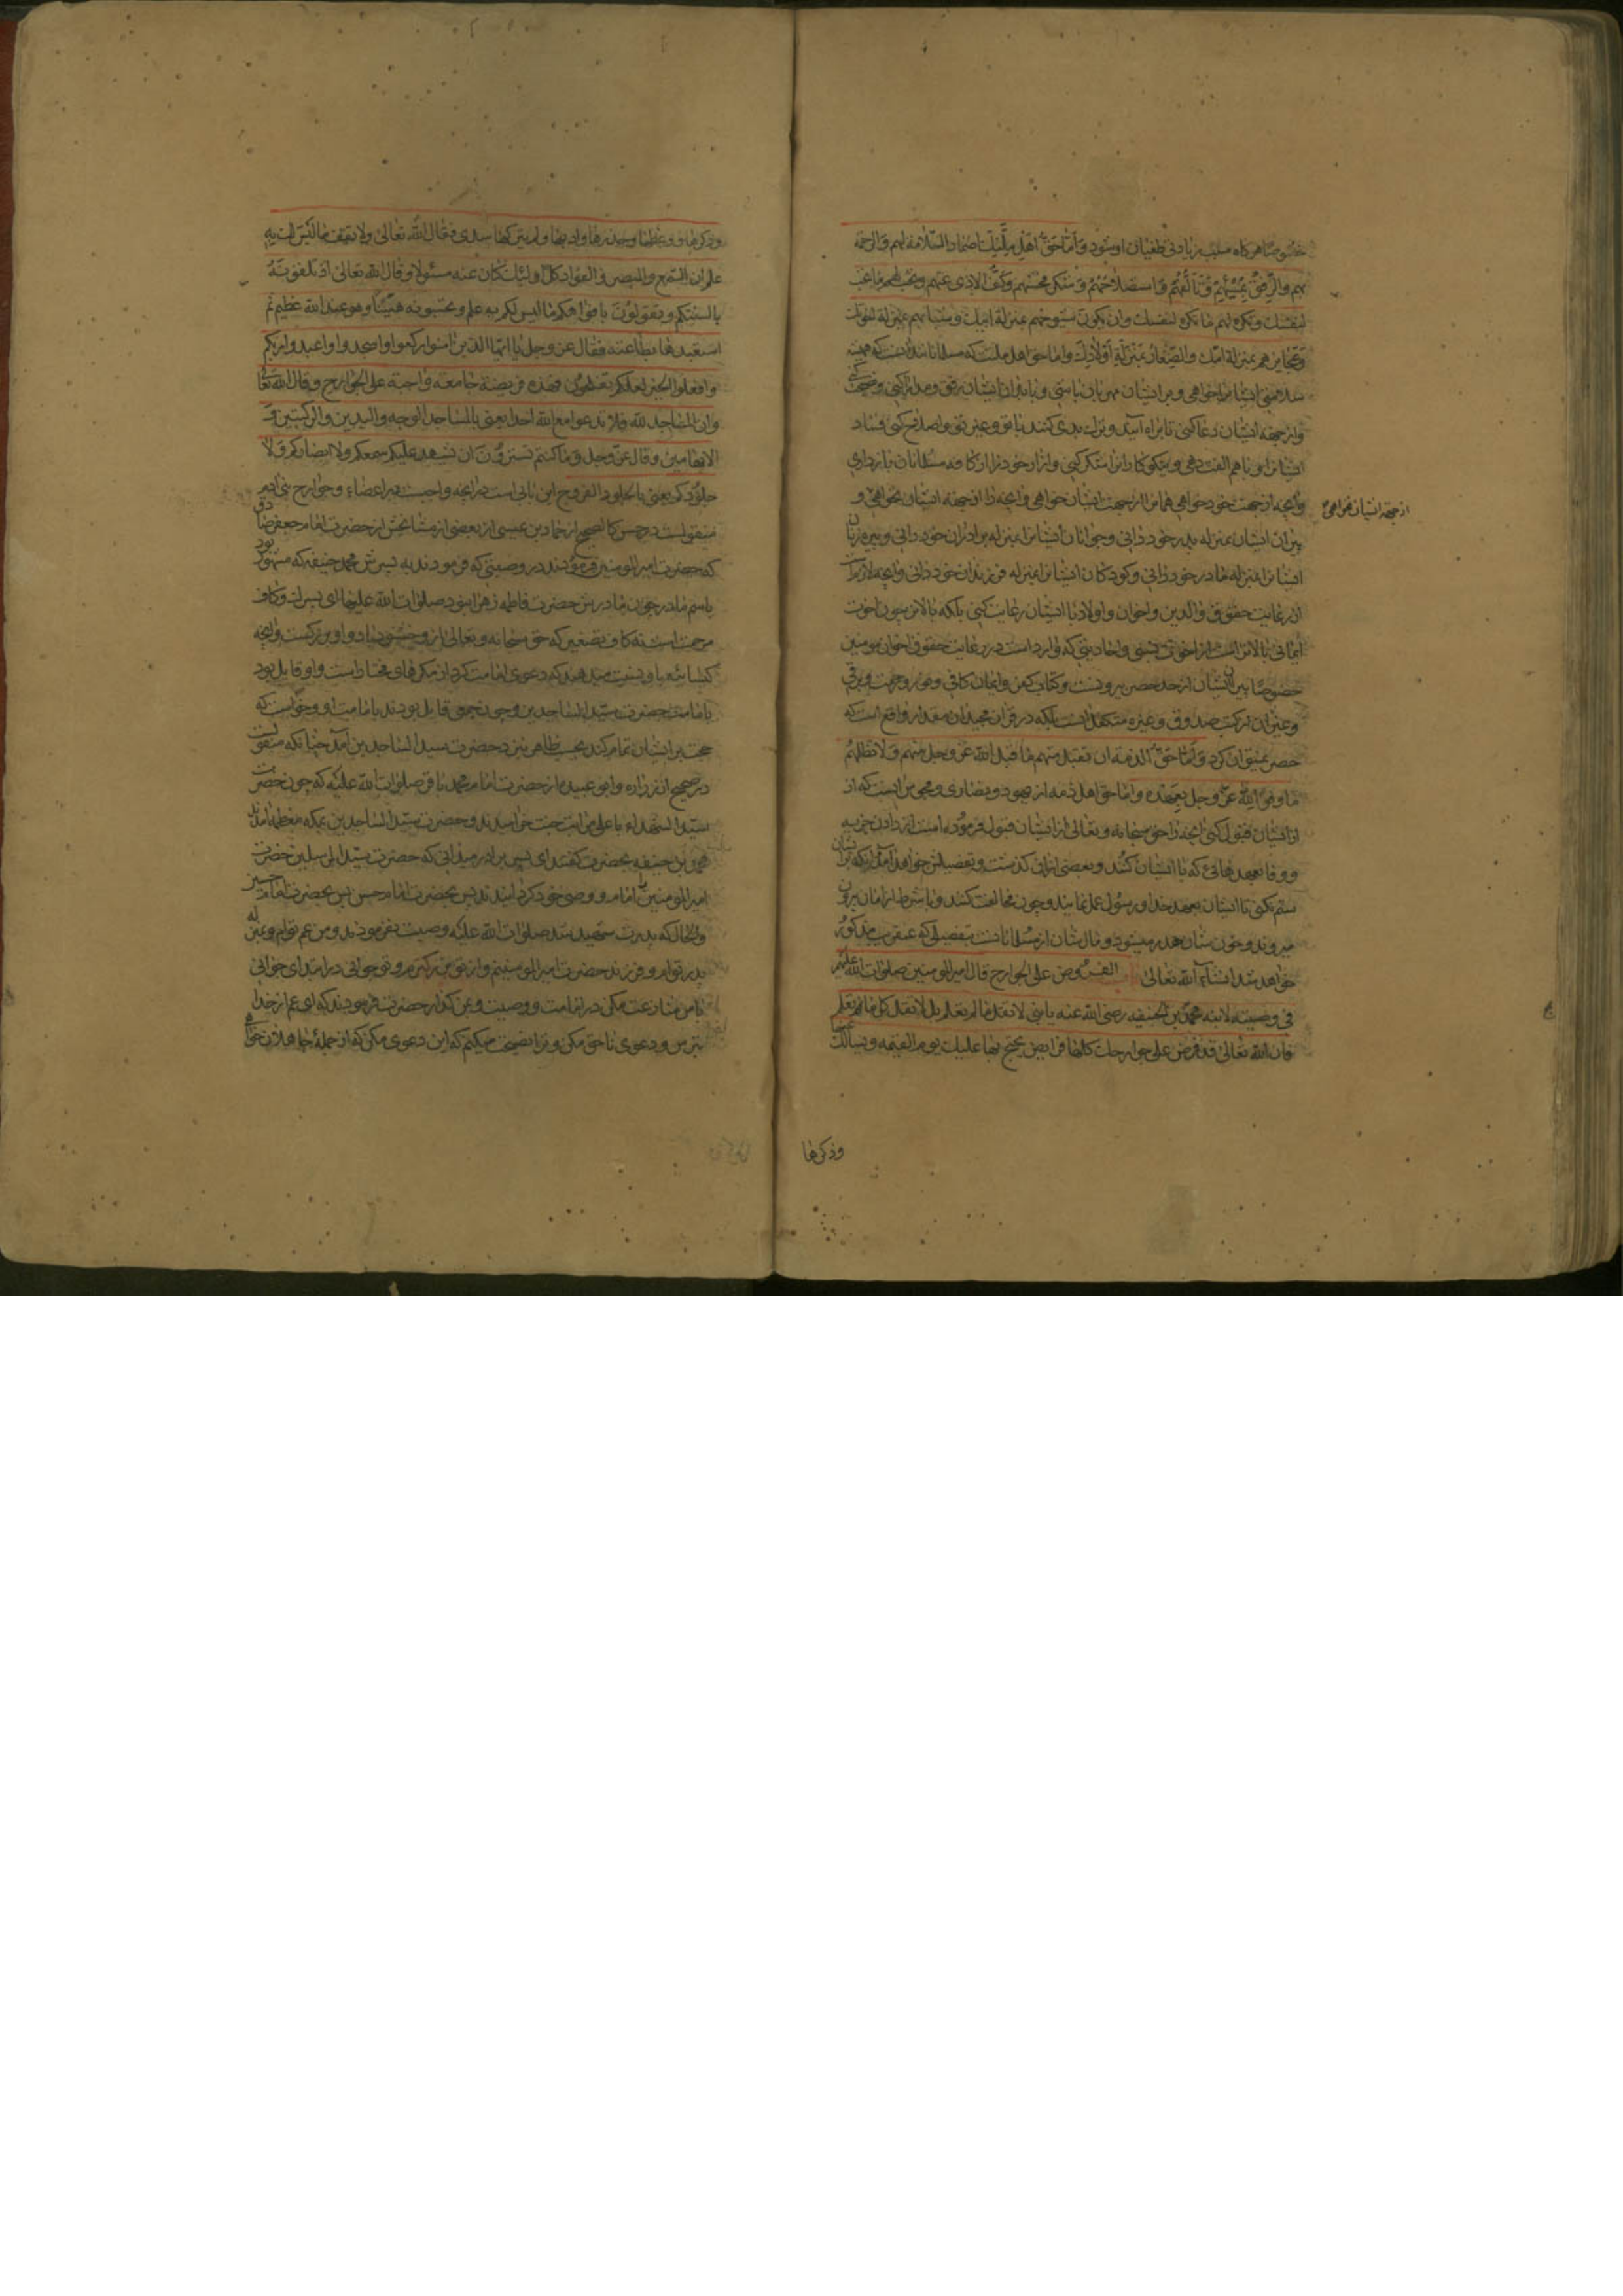 خصوصا هرگاه سبب زیادتی طغیان او شود و أمّا حقّ اهل ملّتك اضمار السّلامة لهم والرحمة
بهم والرّفق بمسیئهم و تألّفهم و استصلاحهم و شكر محسنهم و كفّ الاذی عنهم و تحبّ لهم ما تحبّ
لنفسك و تكره لهم ما تكره لنفسك و ان یكون شیوخهم بمنزلة ابیك و شبابهم بمنزلة اخوتك
و عجایزهم بمنزلة امّك والصّغار بمنزلة أولادك و اما حق اهل ملت كه مسلمانانند آنست كه همیشه
سلامتی ایشانرا خواهی و بر ایشان مهربان باشی و با بدان ایشان برفق و مدارا كنی و نصیحت كنی
و از جهة ایشان دعا كنی تا براه آیند و ترك بدی كنند با تو و غیر تو و اصلاح كنی فساد
ایشانرا و با هم الفت دهی و نیكوكارانرا شكر كنی و آزار خود را از كافه مسلمانان بازداری
و آنچه از جهت خود خواهی همانرا از جهت ایشان خواهی و آنچه را از جهة ایشان نخواهی و
از جهة ایشان نخواهی
پیران ایشان بمنزله پدر خود دانی و جوانان ایشانرا بمنزله برادران خود دانی و پیره زنان
ایشانرا بمنزله مادر خود دانی و كودكان ایشانرا بمنزله فرزندان خود دانی و آنچه لازمست
از رعایت حقوق والدین و اخوان و اولاد با ایشان رعایت كنی بلكه بالاتر چون اخوت
ایمانی بالاتر است از اخوت نسبی و احادیثی كه وارد است در رعایت حقوق اخوان مؤمنین
خصوصا پیران ایشان از حد حصر بیرونست و كتاب كفر و ایمان كافی و
و غیر آن از كتب صدوق و غیره متكفل آنست بلكه در قرآن مجید آن مقدار واقع است كه
حصر نمیتوان كرد و أمّا حقّ الذمة ان تقبل منهم ما قبل الله عزّ و جلّ منهم و لا تظلمهم
ما وفوا لله عزّ و جلّ بعهده و امّا حق اهل ذمه از یهود و نصاری و مجوس آنست كه از
از ایشان قبول كنی آنچه را حق سبحانه و تعالی از ایشان قبول فرموده است از دادن جزیه
و وفا بعهدهائی كه با ایشان كنند و بعضی از آن گذشت و تفصیلش خواهد آمد و آنكه بر ایشان
ستم نكنی تا ایشان بعهد خدا و رسول عمل نمایند و چون مخالفت كنند و با شرط از امان بیرون
میروند و خون شان هدر میشود و مال شان از مسلمانانست بتفصیلی كه عنقریب مذكور
خواهد شد انشاء الله تعالی الفروض علی الجوارح قال امیرالمؤمنین صلوات الله علیه
فی وصیته لابنه محمّد بن الحنفیه رضی الله عنه یا بنی لا تقل ما لم تعلم بل لا تقل كل ما تعلم
فان الله تعالی قد فرض علی جوارحك كلها فرایض یحتج بها علیك یوم القیمة و یسألك عنها
وذكرها
وذكرها و وعظها و حذرها و ادبها و لم یتركها سدی فقال الله تعالی و لا تقف ما لیس لك به
علم ان السّمع والبصر والفؤاد كلّ اولئك كان عنه مسئولا و قال الله تعالی اذ تلقونه
بالسنتكم و تقولون بافواهكم ما لیس لكم به علم و تحسبونه هیّنا و هو عند الله عظیم ثم
استعبدها بطاعته فقال عز و جل یا ایها الذین امنوا اركعوا و اسجدوا و اعبدوا ربكم
و افعلوا الخیر لعلكم تفلحون فهذه فریضة جامعة واجبة علی الجوارح و قال الله تعالی
و ان المساجد لله فلا تدعوا مع الله احدا یعنی بالمساجد الوجه والیدین والركبتین و
الابهامین و قال عزّ و جلّ و ما كنتم تستترون ان تشهد علیكم سمعكم و لا ابصاركم و لا
جلودكم یعنی بالجلود الفروج این بابی است در آنچه واجبست بر اعضاء و جوارح بنی آدم
منقولست در حسن كالصحیح از حماد بن عیسی از بعضی از مشایخش از حضرت امام جعفر صادق
كه حضرت امیر المومنین فرمودند در وصیتی كه فرمودند به پسرش محمد حنفیه كه مشهور بود
باسم مادر چون مادرش حضرت فاطمه زهرا نبود صلوات الله علیها ای پسرك و كاف
مرحمت است نه كاف تصغیر كه حق سبحانه و تعالی از و خشنود باد و او بزرگست و آنچه
كیسانیه باو نسبت میدهند كه دعوی امامت كرد از مكرهای مختار است و او قایل بود
بامامت حضرت سیّد الساجدین و چون جمعی قایل بودند بامامت او و خواست كه
حجت بر ایشان تمام كند بحسب ظاهر نزد حضرت سید الساجدین آمد چنانكه منقولست
در صحیح از زراره و ابو عبیده از حضرت امام محمد باقر صلوات الله علیه كه چون حضرت
سیّد الشهداء باعلی مراتب جنت خرامیدند و حضرت سیّد الساجدین بمكه معظمه آمدند
محمد بن حنفیه بحضرت گفت ای پسر برادر میدانی كه حضرت سیّد المرسلین حضرت
امیر المومنین را امام و وصی خود گردانیدند پس بحضرت امام حسن پس بحضرت امام حسین
والحال كه پدرت شهید شد صلوات الله علیه وصیت نفرمودند و من عم توام و
پدر توام و فرزند حضرت امیر المومنینم و از تو بزركترم و تو جوانی در ابتدای جوانی
با من منازعت مكن در امامت و وصیت و غیر آن حضرت فرمودند كه ای عم از خدا
بترس و دعوی ناحق مكن و ترا نصیحت میكنم كه این دعوی مكن كه از جمله جاهلان